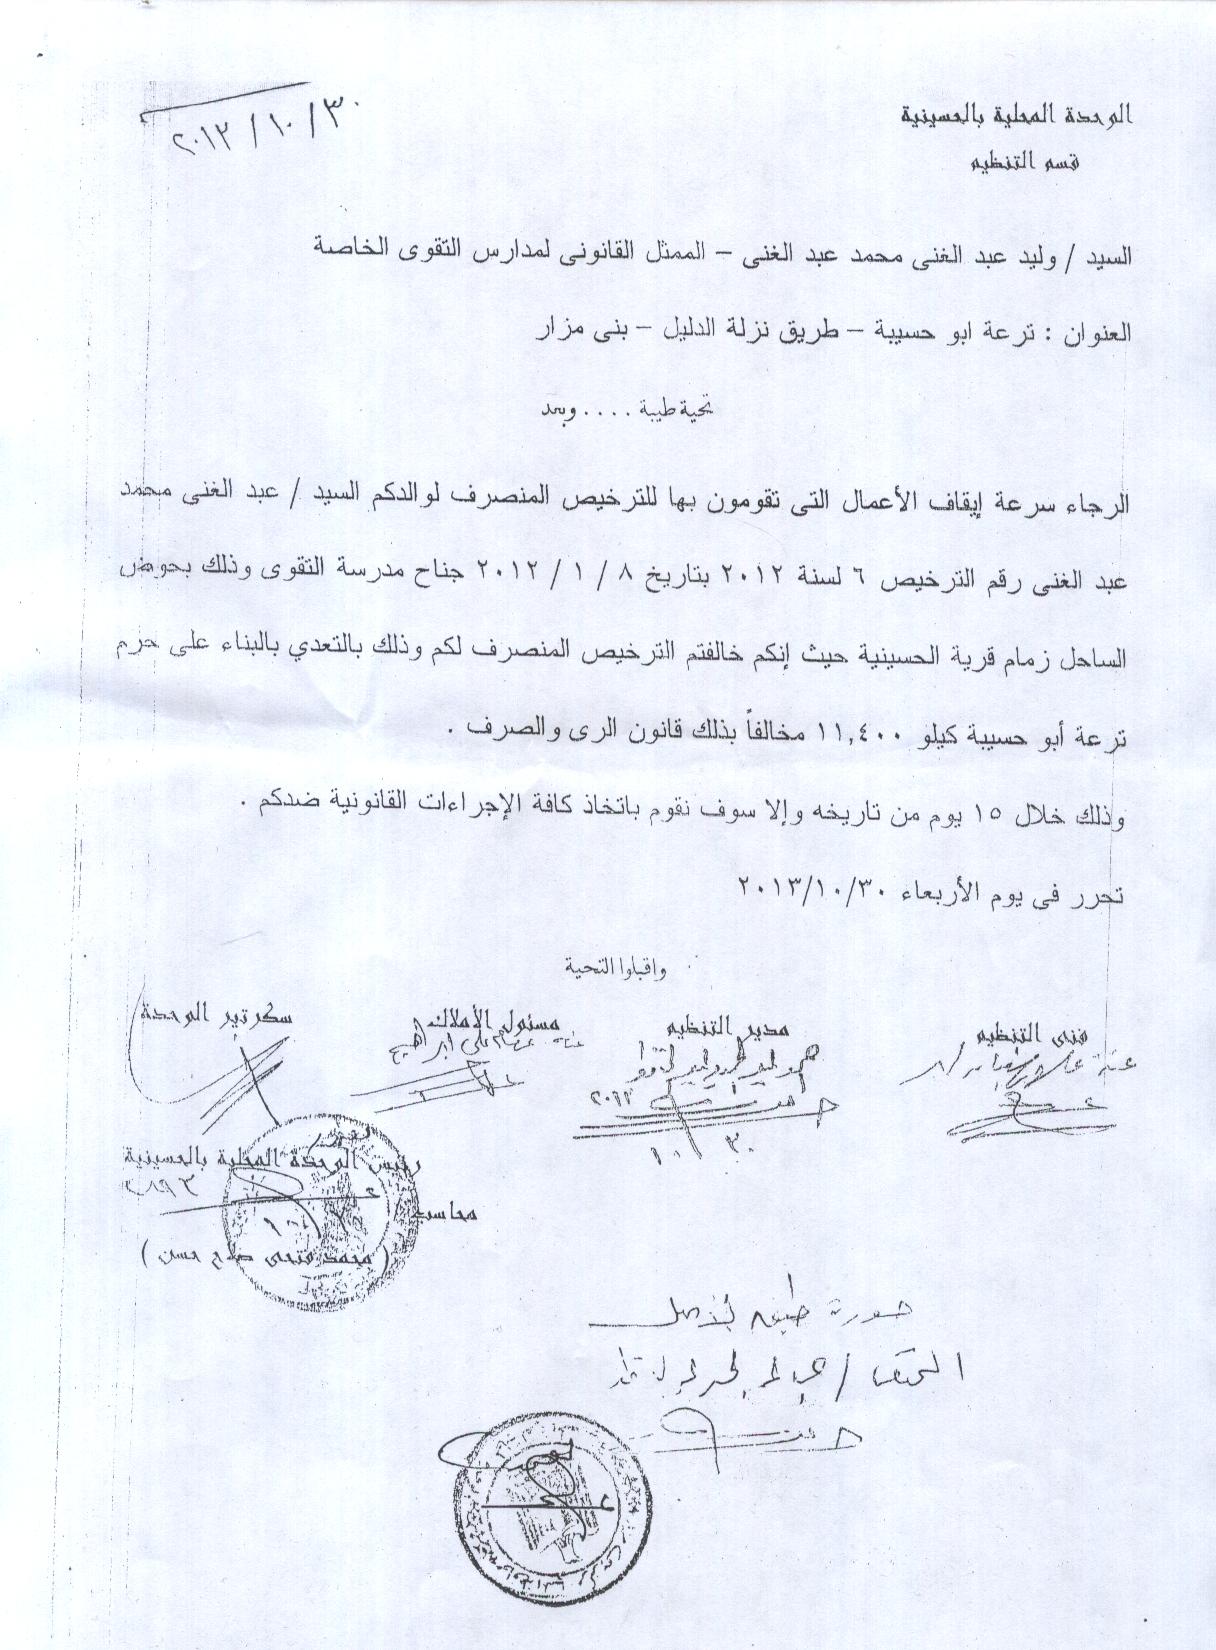 ٢٠١٣/١٠/٣٠
الوحدة المحلية بالحسينية
قسم التنظيم
السيد / وليد عبد الغنى محمد عبد الغنى – الممثل القانونى لمدارس التقوى الخاصة
العنوان : ترعة ابو حسيبة – طريق نزلة الدليل – بنى مزار
تحية طيبة .... وبعد
الرجاء سرعة إيقاف الأعمال التى تقومون بها للترخيص المنصرف لوالدكم السيد / عبد الغنى محمد
عبد الغنى رقم الترخيص ٦ لسنة ٢٠١٢ بتاريخ ٨ / ١ / ٢٠١٢ جناح مدرسة التقوى وذلك بحوض
الساحل زمام قرية الحسينية حيث إنكم خالفتم الترخيص المنصرف لكم وذلك بالتعدي بالبناء على حرم
ترعة أبو حسيبة كيلو ١١,٤٠٠ مخالفاً بذلك قانون الرى والصرف .
وذلك خلال ١٥ يوم من تاريخه وإلا سوف نقوم باتخاذ كافة الإجراءات القانونية ضدكم .
تحرر فى يوم الأربعاء ٢٠١٣/١٠/٣٠
واقبلوا التحية
فنى التنظيم
مدير التنظيم
مسئول الأملاك
سكرتير الوحدة
رئيس الوحدة المحلية بالحسينية
محاسب /
( محمد فتحى صلاح حسن )
صورة طبق الأصل